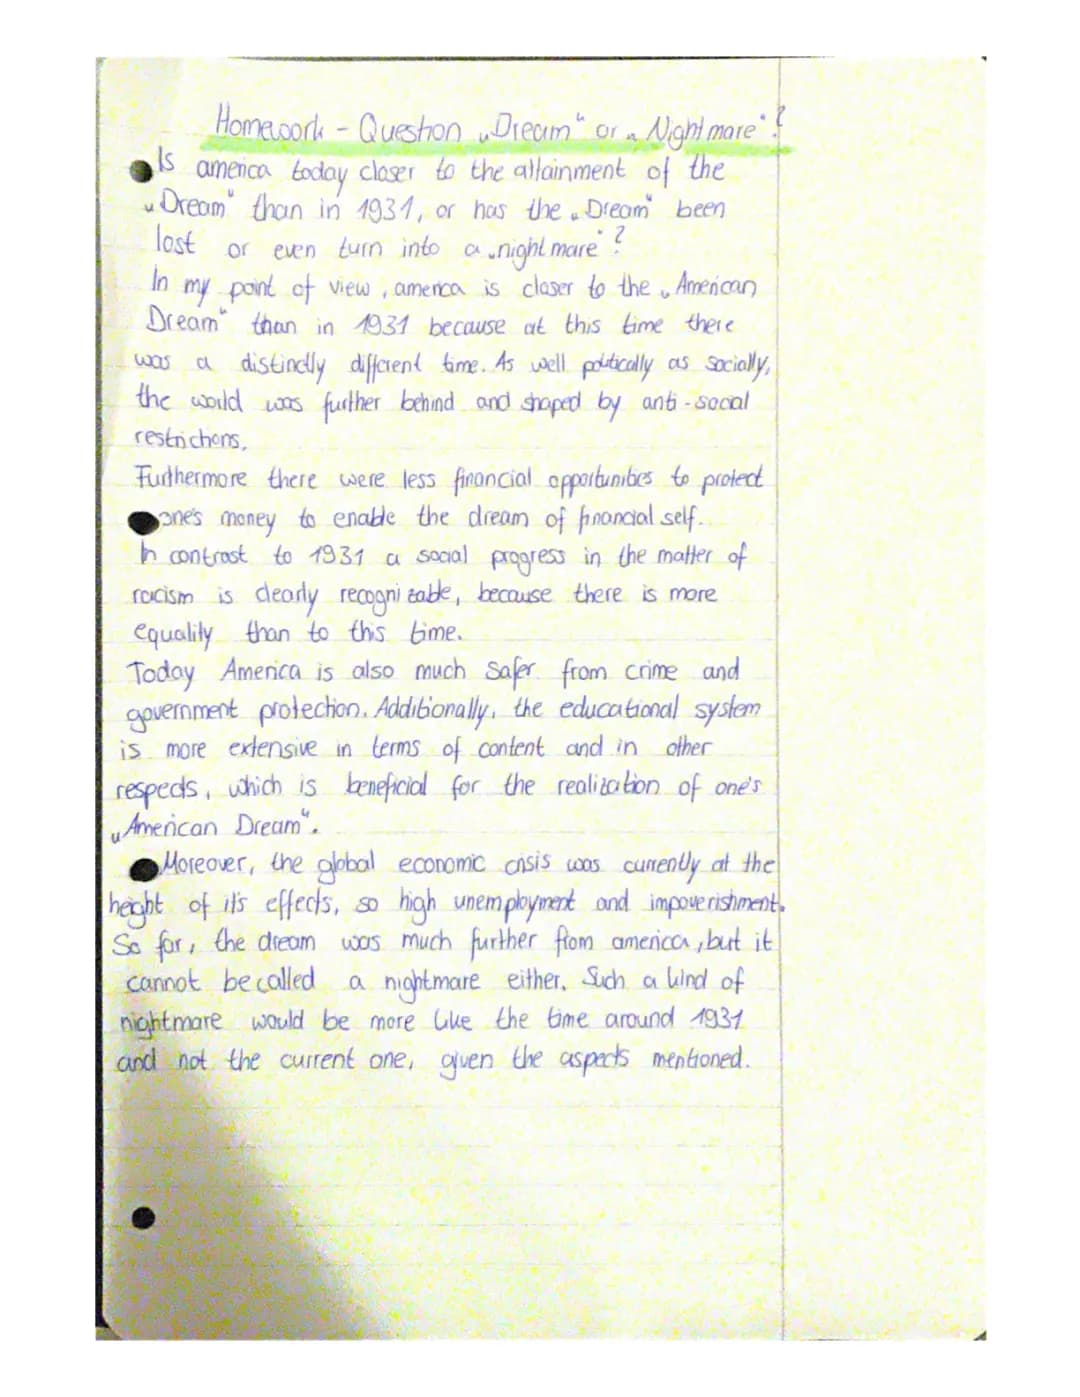 Homework - Question „Dream“ or „Nightmare“?
Is america today closer to the attainment of the
„Dream“ than in 1931, or has the „Dream“ been
lost or even turn into a „nightmare“?
In my point of view, america is closer to the „American
Dream“ than in 1931 because at this time there
was a distinctly different time. As well politically as socially,
the world was further behind and shaped by anti-social
restrichons.
Furthermore there were less financial opportunities to protect
one's money to enable the dream of financial self.
In contrast to 1931 a social progress in the matter of
racism is clearly recognizable, because there is more
equality than to this time.
Today America is also much safer from crime and
government protection. Additionally, the educational system
is more extensive in terms of content and in other
respects, which is beneficial for the realization of one's
„American Dream“.
Moreover, the global economic crisis was currently at the
height of it's effects, so high unemployment and impoverishment.
So far, the dream was much further from america, but it
cannot be called a nightmare either. Such a kind of
nightmare would be more like the time around 1931
and not the current one, given the aspects mentioned.